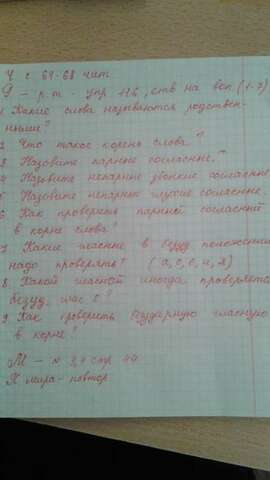 Ч с 67-68 чит.
Я - р.т. - упр 116, отв на воп. (1-7)
1 Какие слова называются родствен-
ными?
2 Что такое корень слова?
3 Назовите парные согласные.
4 Назовите непарные звонкие согласные
5 Назовите непарные глухие согласные
6 Как проверить парный согласный
в корне слова?
7 Какие гласные в безуд положении
надо проверять? (а, о, е, и, я)
8. Какой гласной иногда проверяется
безуд. глас е?
9. Как проверить безударную гласную
в корне?
М - № 3,4 стр 44
П мира - повтор